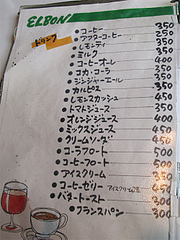 ELBON
ドリンク
• コーヒー 350
• アフターコーヒー 250
• レモンティ 350
• ミルク 350
• コーヒーオーレ 400
• コカ・コーラ 350
• ジンジャーエール 350
• カルピス 350
• レモンスカッシュ 450
• トマトジュース 350
• オレンジジュース 400
• ミックスジュース 450
• クリームソーダ 450
• コーラフロート 500
• コーヒーフロート 500
• アイスクリーム 350
• コーヒーゼリー アイスクリーム添 450
• バタートースト 200
• フランスパン 300